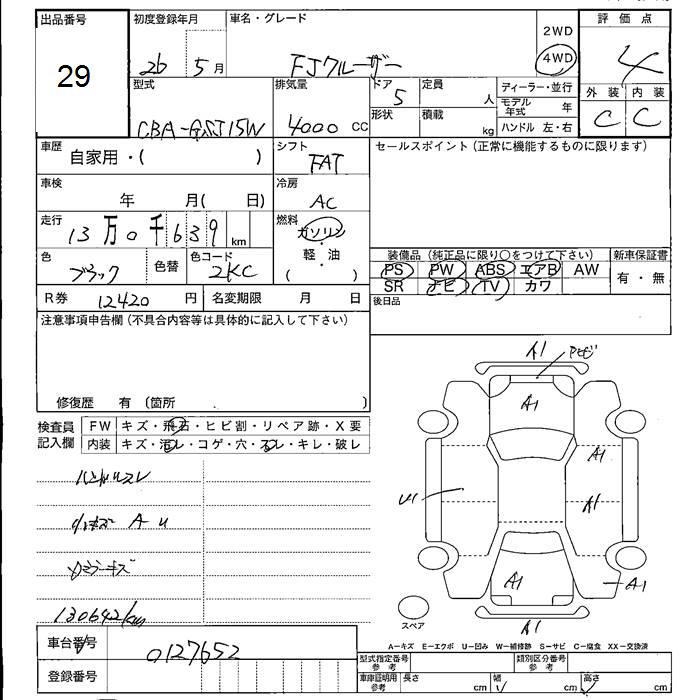 出品番号
29
初度登録年月
26年5月
車名・グレード
FJクルーザー
2WD
4WD
評価点
4
外装 内装
C C
型式
CBA-GSJ15W
排気量
4000 CC
ドア
5
形状
定員
人
積載
kg
ディーラー・並行
モデル年式 年
ハンドル 左・右
車歴
自家用・( )
シフト
FAT
セールスポイント(正常に機能するものに限ります)
車検
年 月( 日)
冷房
AC
走行
13万0千639km
燃料
ガソリン
・
軽・油
・
( )
色
ブラック
色替
色コード
2KC
装備品 (純正品に限り○をつけて下さい)
PS PW ABS エアB AW
SR ナビ TV カワ
新車保証書
有・無
R券 12420円
名変期限 月 日
後日品
注意事項申告欄(不具合内容等は具体的に記入して下さい)
修復歴 有 〔箇所 〕
検査員
記入欄
FW キズ・飛石・ヒビ割・リペア跡・X要
内装 キズ・汚レ・コゲ・穴・スレ・キレ・破レ
ハンドルスレ
A U
ミラーキズ
130642/km
A1
A1
A1
A1
U1
A1
A1
A1
スペア
A−キズ E−エクボ U−凹み W−補修跡 S−サビ C−腐食 XX−交換済
車台番号
0127652
登録番号
型式指定番号
参考
類別区分番号
参考
車庫証明用
参考
長さ cm
幅 cm
高さ cm